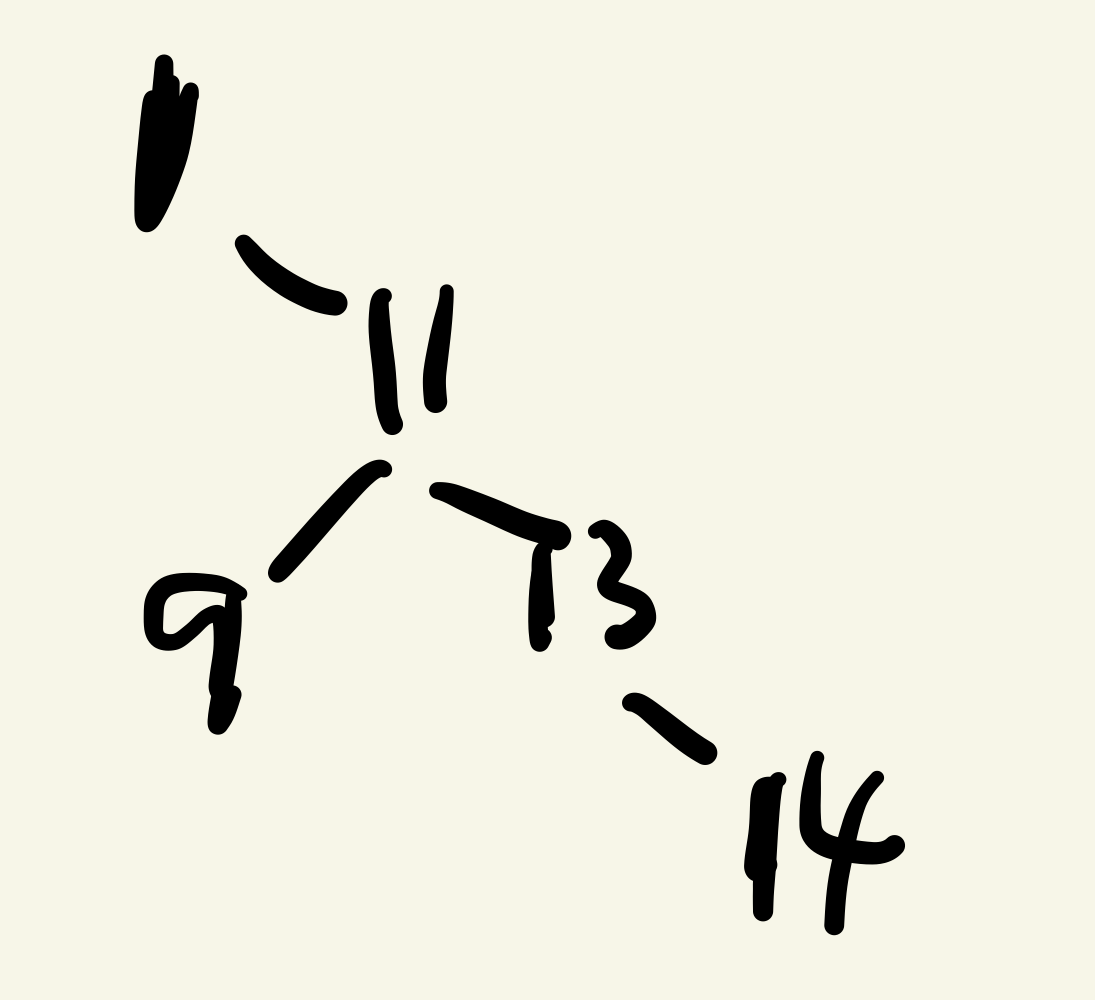 11
9
13
14